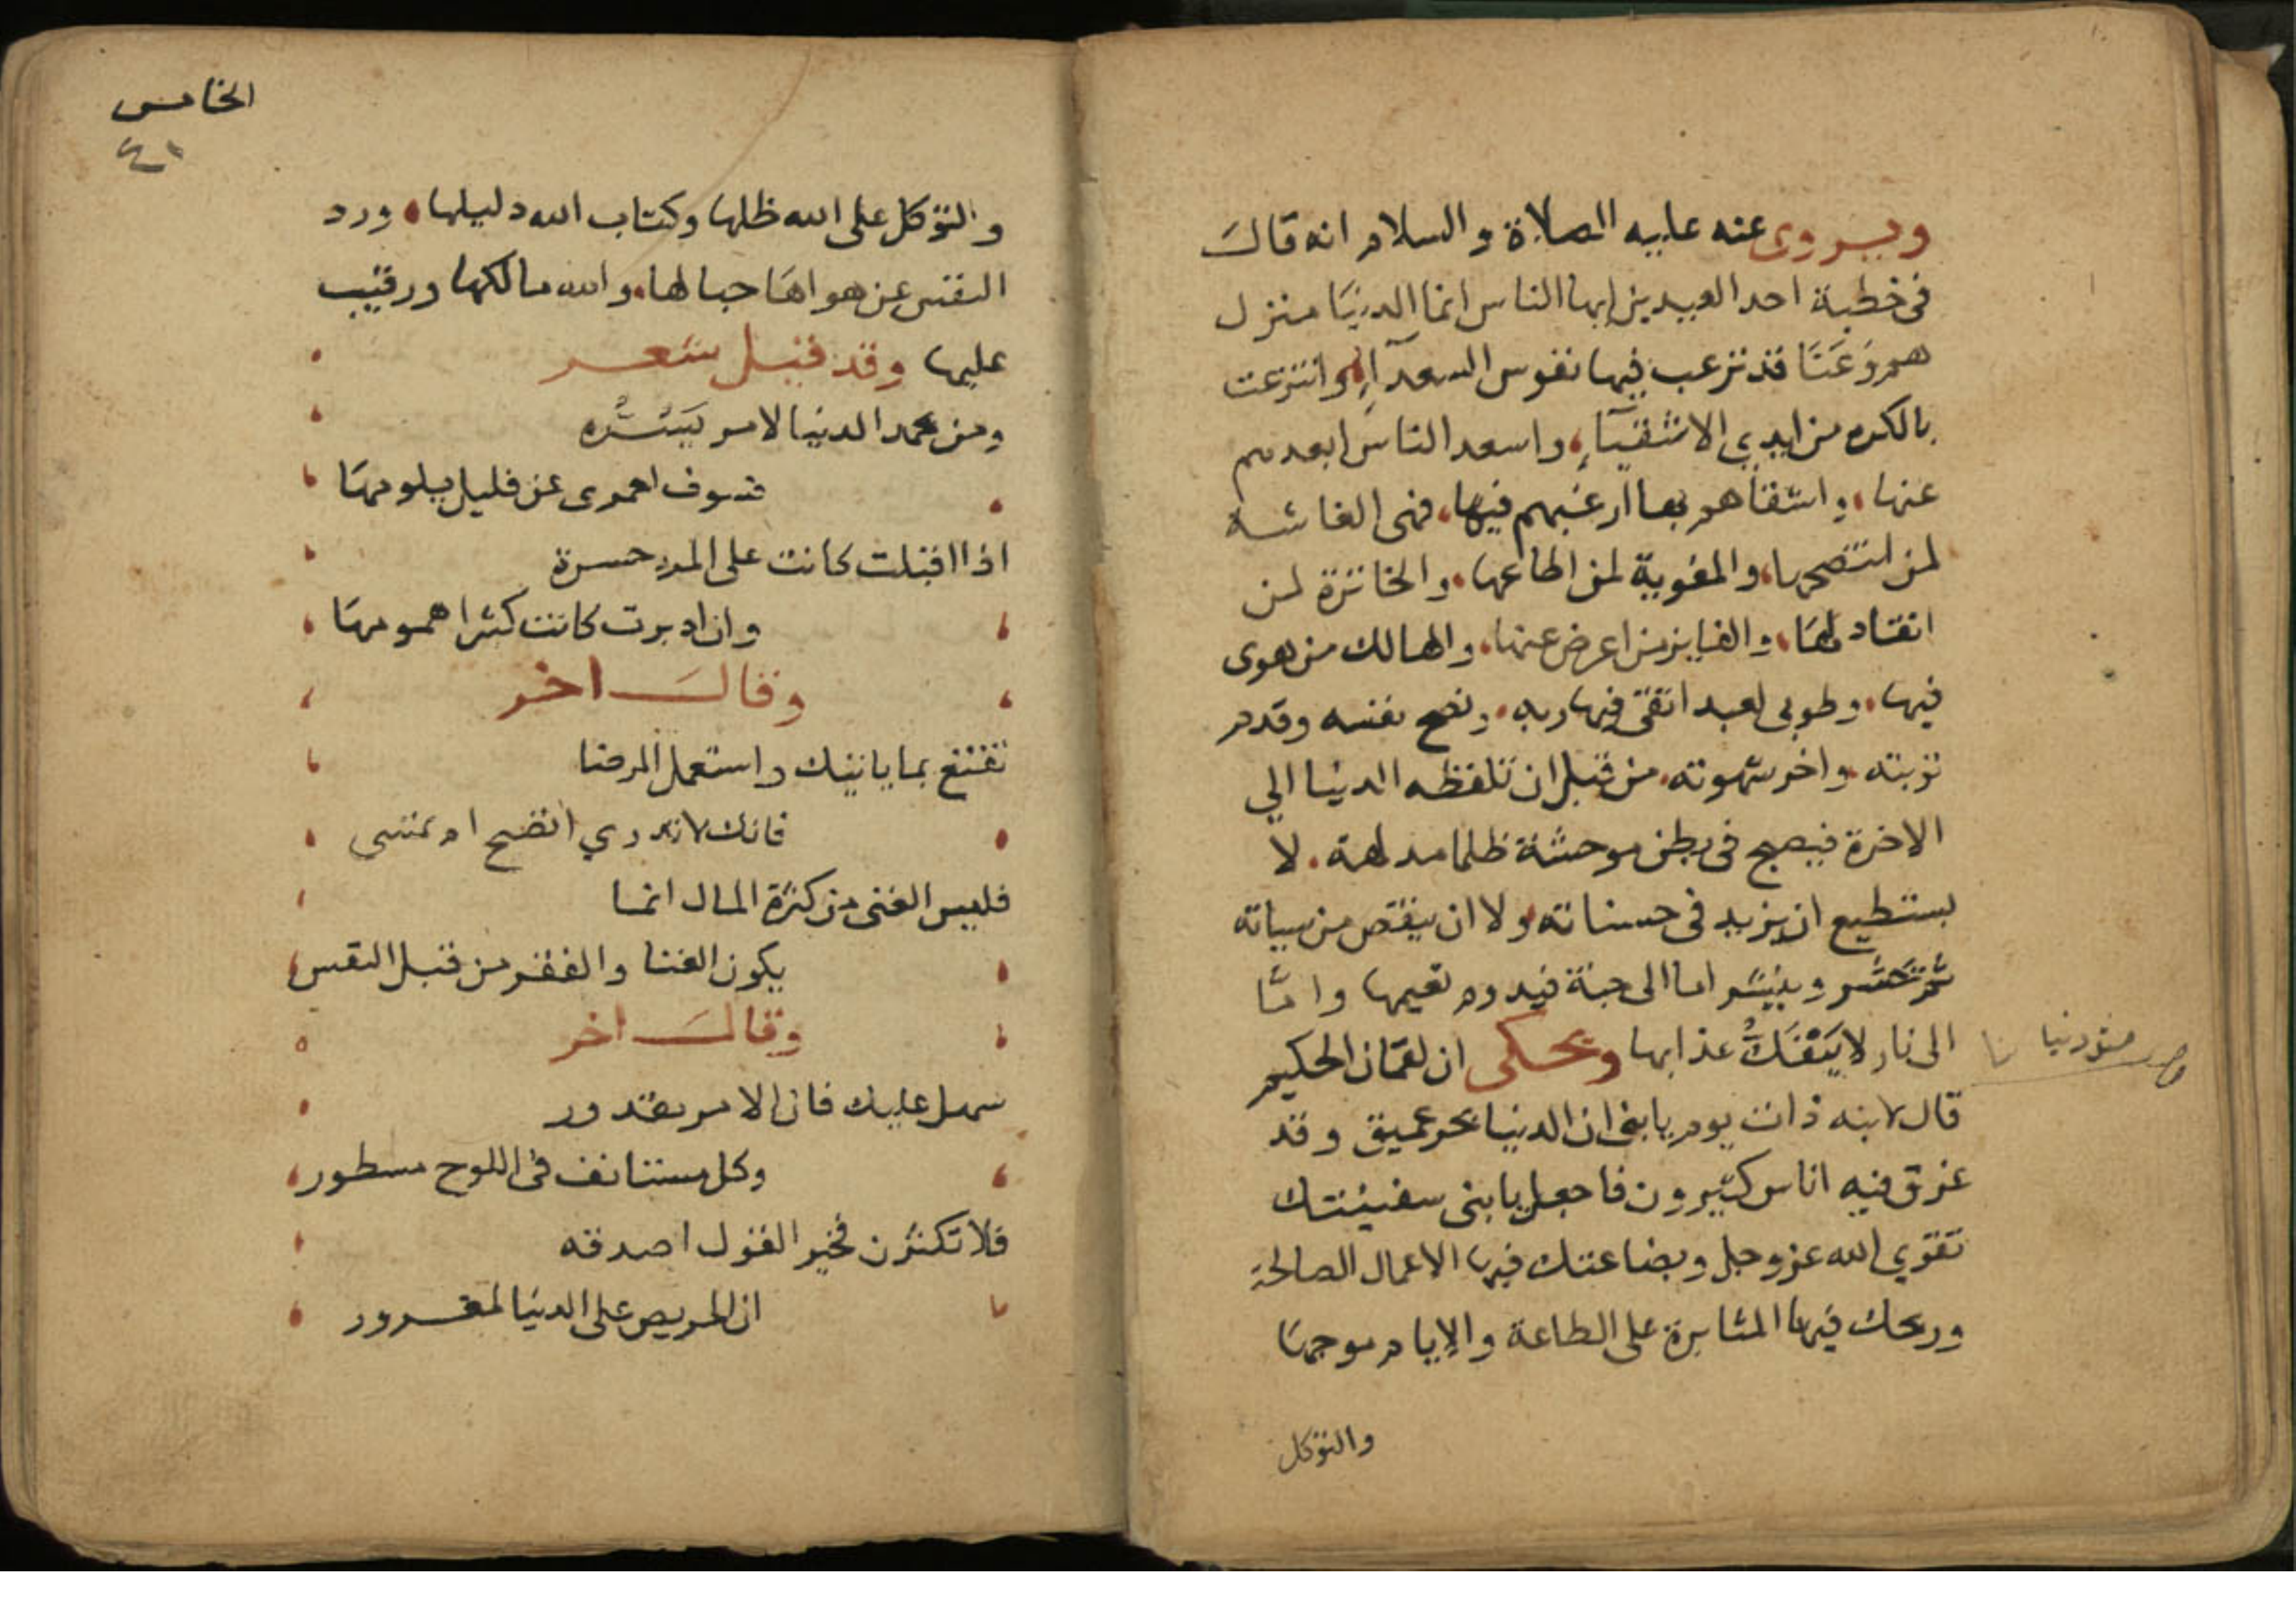 ويروى عنه عليه الصلاة والسلام انه قال
في خطبة احد العيدين ايها الناس انما الدنيا منزل
هم وعنا قد نزعت فيها نفوس السعدآء وانتزعت
بالكره من ايدي الاشقيآء، واسعد الناس ابعدهم
عنها، واشقاهم بها ارغبهم فيها، فهى الغاشة
لمن انتصحها، والمغوية لمن اطاعها، والخاترة لمن
انقاد لها، والفايز من اعرض عنها، والهالك من هوى
فيها، وطوبى لعبد اتقى فيها ربه، ونصح نفسه وقدم
توبته واخر شهوته، من قبل ان تلفظه الدنيا الي
الاخرة فيصبح فى بطن موحشة ظلما مدلهمة، لا
يستطيع ان يزيد فى حسناته ولا ان ينقص من سياته
ثم تحشر وينشر اما الى جنة فيدوم نعيمها واما
الى نار لا ينفك عذابها ويحكى ان لقمان الحكيم
قال لابنه ذات يوم يابنى ان الدنيا بحر عميق وقد
غرق فيه اناس كثيرون فاجعل يابنى سفينتك
تقوي الله عز وجل وبضاعتك فيها الاعمال الصالحة
وربحك فيها المثابرة على الطاعة والايام موجها
والتوكل
الخامس
٤١
والتوكل على الله ظلها وكتاب الله دليلها، ورد
النفس عن هواها حبالها، والله مالكها ورقيب
عليها وقد قيل شعر
ومن يحمد الدنيا لامر يسره
فسوف لعمرى عن قليل يلومها
اذا اقبلت كانت على المرء حسرة
وان ادبرت كانت كثيرا همومها
وقال اخر
تقنع بما ياتيك واستعمل الرضا
فانك لا تدري اتضبح ام تمسى
فليس الغنى من كثرة المال انما
يكون الغنا والفقر من قبل النفس
وقال اخر
سهل عليك فان الامر مقدور
وكل مستانف فى اللوح مسطور
فلا تكثرن فخير القول اصدقه
ان الحريص على الدنيا لمغرور